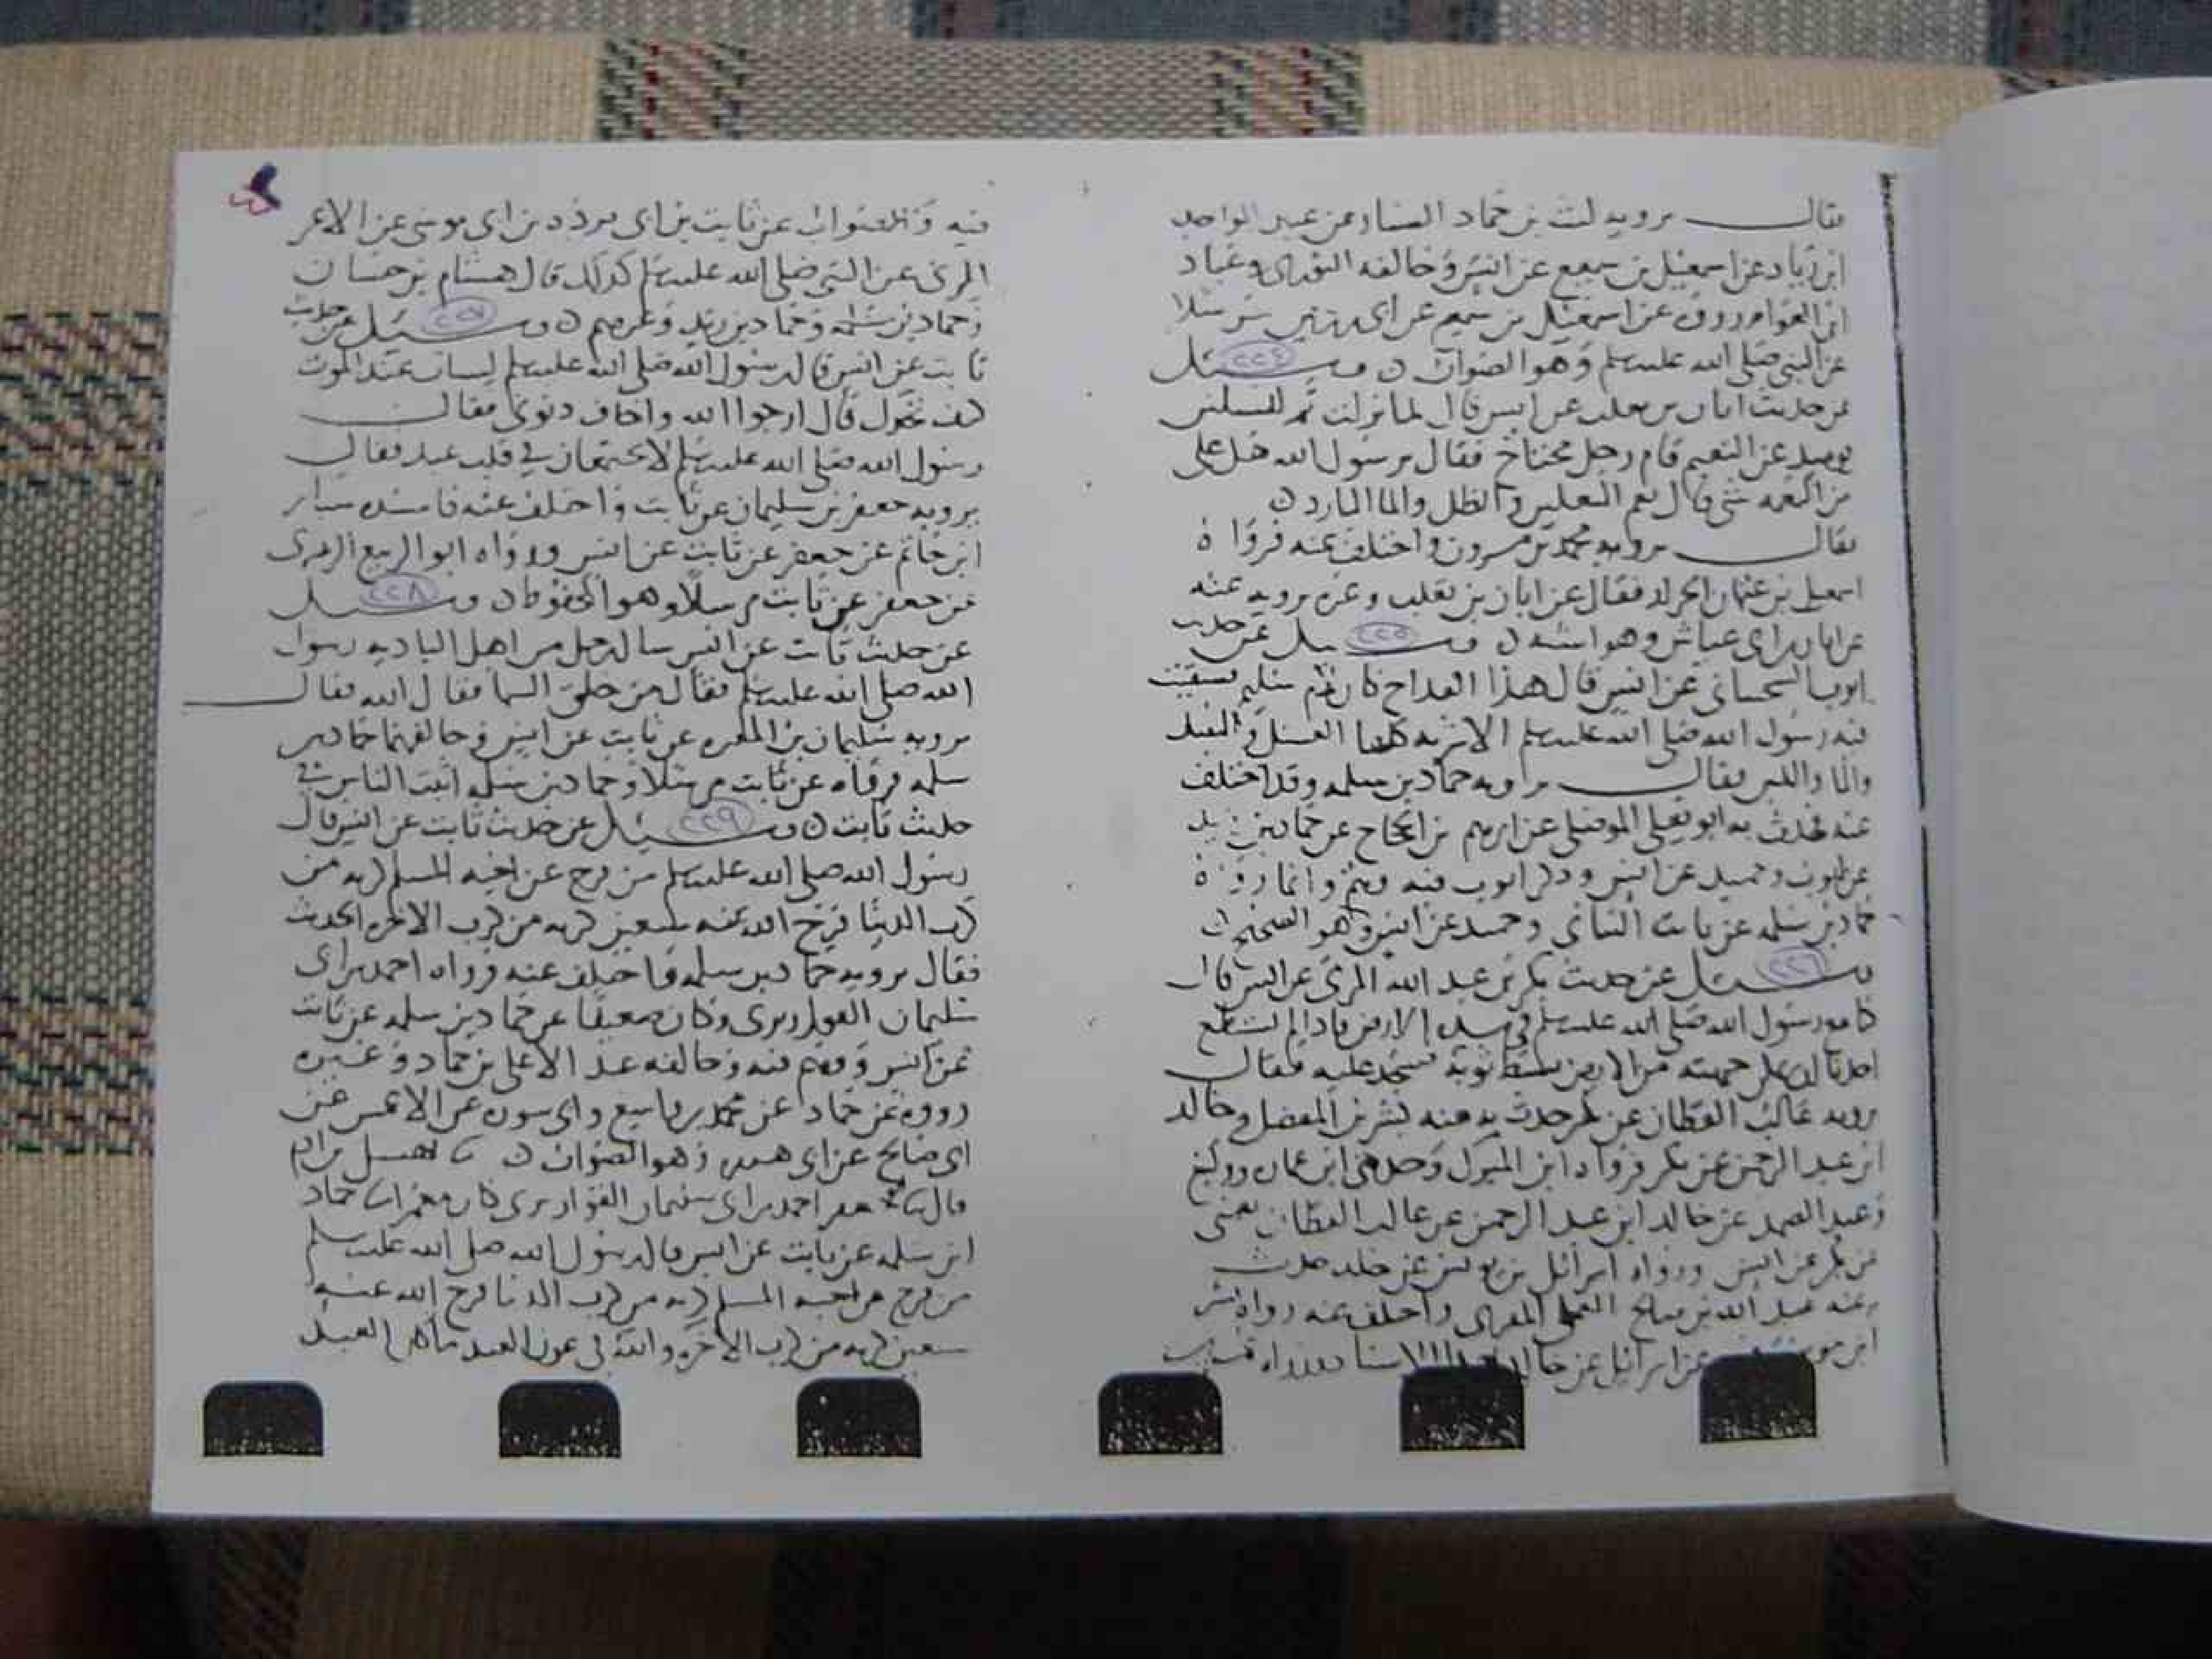 فقال يرويه ليث بن حماد الصفار عن عبد الواحد
ابن زياد عن اسمعيل بن سميع عن انس وخالفه الثوري وعباد
ابن العوام رووه عن اسمعيل بن سميع عن ابي رزين مرسلا
عن النبي صلى الله عليه وسلم وهو الصواب ٥ وسئل ٢٢٤
عن حديث ابان بن تغلب عن انس قال لما نزلت ثم لتسئلن
يوميذ عن النعيم قام رجل محتاج فقال يرسول الله هل علي
من النعمه شي قال نعم النعلين والظل والما البارد ٥
فقال يرويه محمد بن واختلف عنه فرواه
اسمعيل بن عثمان فقال عن ابان بن تغلب وغيره يرويه عنه
عن ابان بن ابي عياش وهو اشبه ٥ وسئل ٢٢٥ عن حديث
ايوب السختياني عن انس قال هذا القداح كان لام سليم فسقيت
فيه رسول الله صلى الله عليه وسلم الاشربه كلها العسل والنبيذ
والما واللبن فقال يرويه حماد بن سلمه وقد اختلف
عنه فحدث به ابو يعلى الموصلي عن ابرهيم بن الحجاج عن حماد بن زيد
عن ايوب وحميد عن انس وذكر ايوب فيه وهم وانما رواه
حماد بن سلمه عن ثابت البناني وحميد عن انس وهو الصحيح ٥
وسئل ٢٢٦ عن حديث بكر بن عبد الله المزني عن انس قال
كنا مع رسول الله صلى الله عليه وسلم في شده الارض فاذا لم يستطع
احدنا ان يمكن جبهته من الارض بسط ثوبه فسجد عليه فقال
يرويه غالب القطان عن بكر حدث به عنه بشر بن المفضل وخالد
ابن عبد الرحمن عن بكر فرواه ابن المبرك وحدهمي ابن عماره ووكيع
وعبد الصمد عن خالد ابن عبد الرحمن عن غالب القطان يعني
عن بكر عن انس ورواه اسرائيل بن يونس عن خالد حدث
عنه عبد الله بن صالح العجلي المقري واختلف عنه رواه بشر
ابن عن اسرائيل عن خالد
فيه والصواب عن ثابت بن ابي برده بن ابي موسى عن الاغر
المزني عن النبي صلى الله عليه وسلم كذلك قال هشام بن حسان
وحماد بن سلمه وحماد بن زيد وغيرهم ٥ وسئل ٢٢٧ عن حديث
ثابت عن انس قال رسول الله صلى الله عليه وسلم لانسان عند الموت
كيف تجول قال ارجوا الله واخاف ذنوبي فقال
رسول الله صلى الله عليه وسلم لا يجتمعان في قلب عبد فقال
يرويه جعفر بن سليمان عن ثابت واختلف عنه فاسنده سيار
ابن حاتم عن جعفر عن ثابت عن انس ورواه ابو الربيع الزهري
عن جعفر عن ثابت مرسلا وهو المحفوظ ٥ وسئل ٢٢٨
عن حديث ثابت عن انس سال رجل من اهل الباديه رسول
الله صلى الله عليه وسلم فقال من خلق السما فقال الله فقال
يرويه سليمان بن المغيره عن ثابت عن انس وخالفهما حماد بن
سلمه فرواه عن ثابت مرسلا وحماد بن سلمه اثبت الناس في
حديث ثابت ٥ وسئل ٢٢٩ عن حديث ثابت عن انس قال
رسول الله صلى الله عليه وسلم من فرج عن اخيه المسلم كربه من
كرب الدنيا فرج الله عنه سبعين كربه من كرب الاخره الحديث
فقال يرويه حماد بن سلمه واختلف عنه فرواه احمد بن ابي
سليمان القواريري وكان ضعيفا عن حماد بن سلمه عن ثابت
عن انس ووهم فيه وخالفه عبد الاعلى بن حماد وغيره
رووه عن حماد عن محمد بن واسع وابي سوره عن الاعمش عن
ابي صالح عن ابي هريره وهو الصواب ٥
قال احمد بن ابي سليمان القواريري حماد
ابن سلمه عن ثابت عن انس قال رسول الله صلى الله عليه وسلم
من فرج عن اخيه المسلم كربه من كرب الدنيا فرج الله عنه
سبعين كربه من كرب الاخره والله في عون العبد ما كان العبد